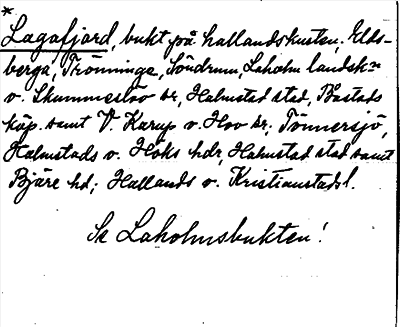 *
Lagafjard, bukt på hallandskusten, Elds-
berga, Trönninge, Söndrum, Laholm landsk:n
o. Skummeslöv sr, Halmstad stad, Båstads
köp. samt V. Karup o. Hov sr. Tönnersjö,
Halmstads o. Höks hdr, Halmstad stad samt
Bjäre hd; Hallands o. Kristianstads l.
Se Laholmsbukten!